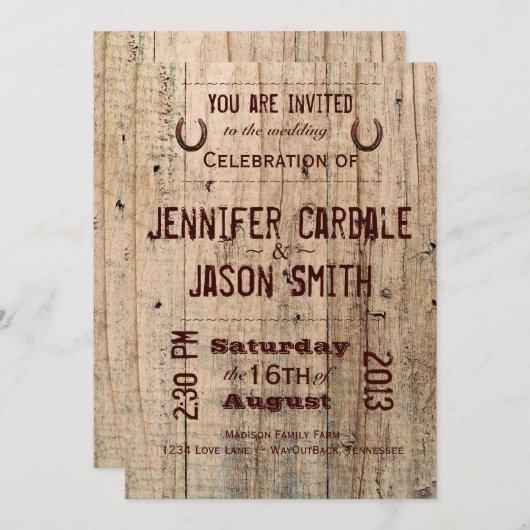 YOU ARE INVITED
to the wedding
CELEBRATION OF
JENNIFER CARDALE
~ & ~
JASON SMITH
2:30 PM
Saturday
the 16TH of
August
2013
MADISON FAMILY FARM
1234 LOVE LANE ~ WAYOUTBACK, TENNESSEE